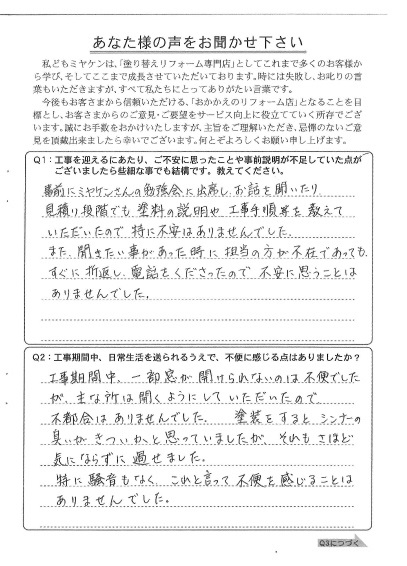 あなた様の声をお聞かせ下さい
私どもミヤケンは、「塗り替えリフォーム専門店」としてこれまで多くのお客様か
ら学び、そしてここまで成長させていただいております。時には失敗し、お叱りの言
葉もいただきますが、すべて私たちにとってありがたい言葉です。
今後もお客さまから信頼いただける、「おかかえのリフォーム店」となることを目
標とし、お客さまからのご意見・ご要望をサービス向上に役立てていく所存でござ
います。誠にお手数をおかけいたしますが、主旨をご理解いただき、忌憚のないご意
見を頂戴出来ましたら幸いでございます。何とぞよろしくお願い申し上げます。
Q1：工事を迎えるにあたり、ご不安に思ったことや事前説明が不足していた点が
ございましたら些細な事でも結構です。教えてください。
事前にミヤケンさんの勉強会に出席し、お話を聞いたり、
見積り段階でも塗料の説明や工事手順等を教えて
いただいたので特に不安はありませんでした。
また、聞きたい事があった時に担当の方が不在であっても、
すぐに折返し電話をくださったので不安に思うことは
ありませんでした。
Q2：工事期間中、日常生活を送られるうえで、不便に感じる点はありましたか？
工事期間中、一部窓が開けられないのは不便でした
が、主な所は開くようにしていただいたので
不都合はありませんでした。 塗装をするとシンナーの
臭いがきついかと思っていましたが、それもさほど
気にならずに過せました。
特に騒音もなく、これと言って不便を感じることは
ありませんでした。
Q3につづく